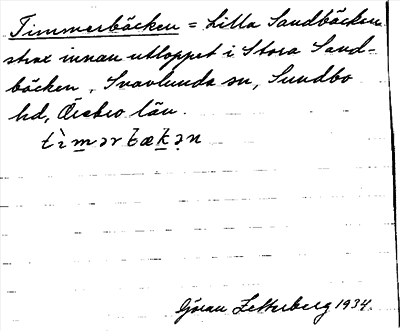 Timmerbäcken = Lilla Sandbäcken
strax innan utloppet i Stora Sand-
bäcken, Snavlunda sn, Sundbo
hd, Örebro län.
tìm̲ərbæk̲ə̣n
Göran Zetterberg 1934.